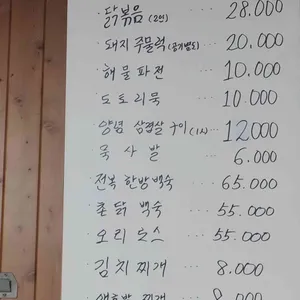 · 닭볶음 (2인) ··· 28.000
· 돼지 주물럭 (공기별도) ··· 20.000
· 해물파전 ··· 10.000
· 도토리묵 ··· 10.000
· 양념 삼겹살 구이 (1人) ··· 12,000
· 묵사발 ··· 6.000
전복 한방백숙 ··· 65.000
· 촌닭 백숙 ··· 55.000
· 오리 로스 ··· 55.000
· 김치찌개 ··· 8.000
찌개 ··· 8.000